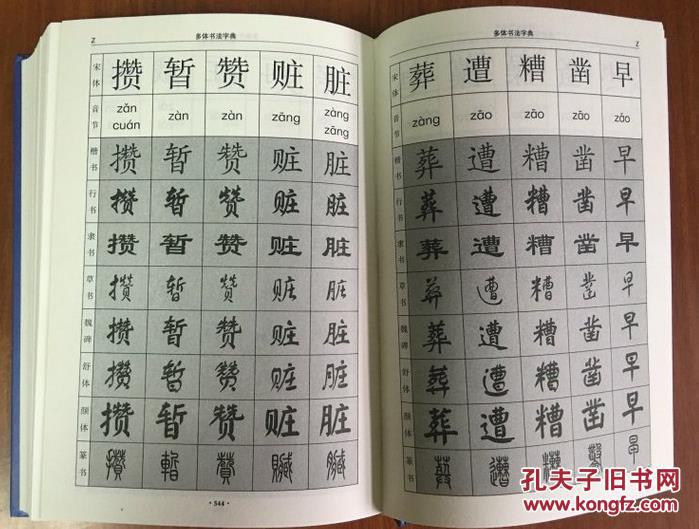 Z
多体书法字典
宋体 攒 暂 赞 赃 脏
音节 zǎn cuán zàn zàn zāng zàng zāng
楷书 攒 暂 赞 赃 脏
行书 攒 暂 赞 赃 脏
隶书 攒 暂 赞 赃 脏
草书 攒 暂 赞 赃 脏
魏碑 攒 暂 赞 赃 脏
舒体 攒 暂 赞 赃 脏
颜体 攒 暂 赞 赃 脏
篆书 攢 暫 贊 贓 臟
·544·
多体书法字典
Z
宋体 葬 遭 糟 凿 早
音节 zàng zāo zāo záo zǎo
楷书 葬 遭 糟 凿 早
行书 葬 遭 糟 凿 早
隶书 葬 遭 糟 凿 早
草书 葬 遭 糟 凿 早
魏碑 葬 遭 糟 凿 早
舒体 葬 遭 糟 凿 早
颜体 葬 遭 糟 凿 早
篆书 葬 遭 糟 鑿 早
孔夫子旧书网
www.kongfz.com